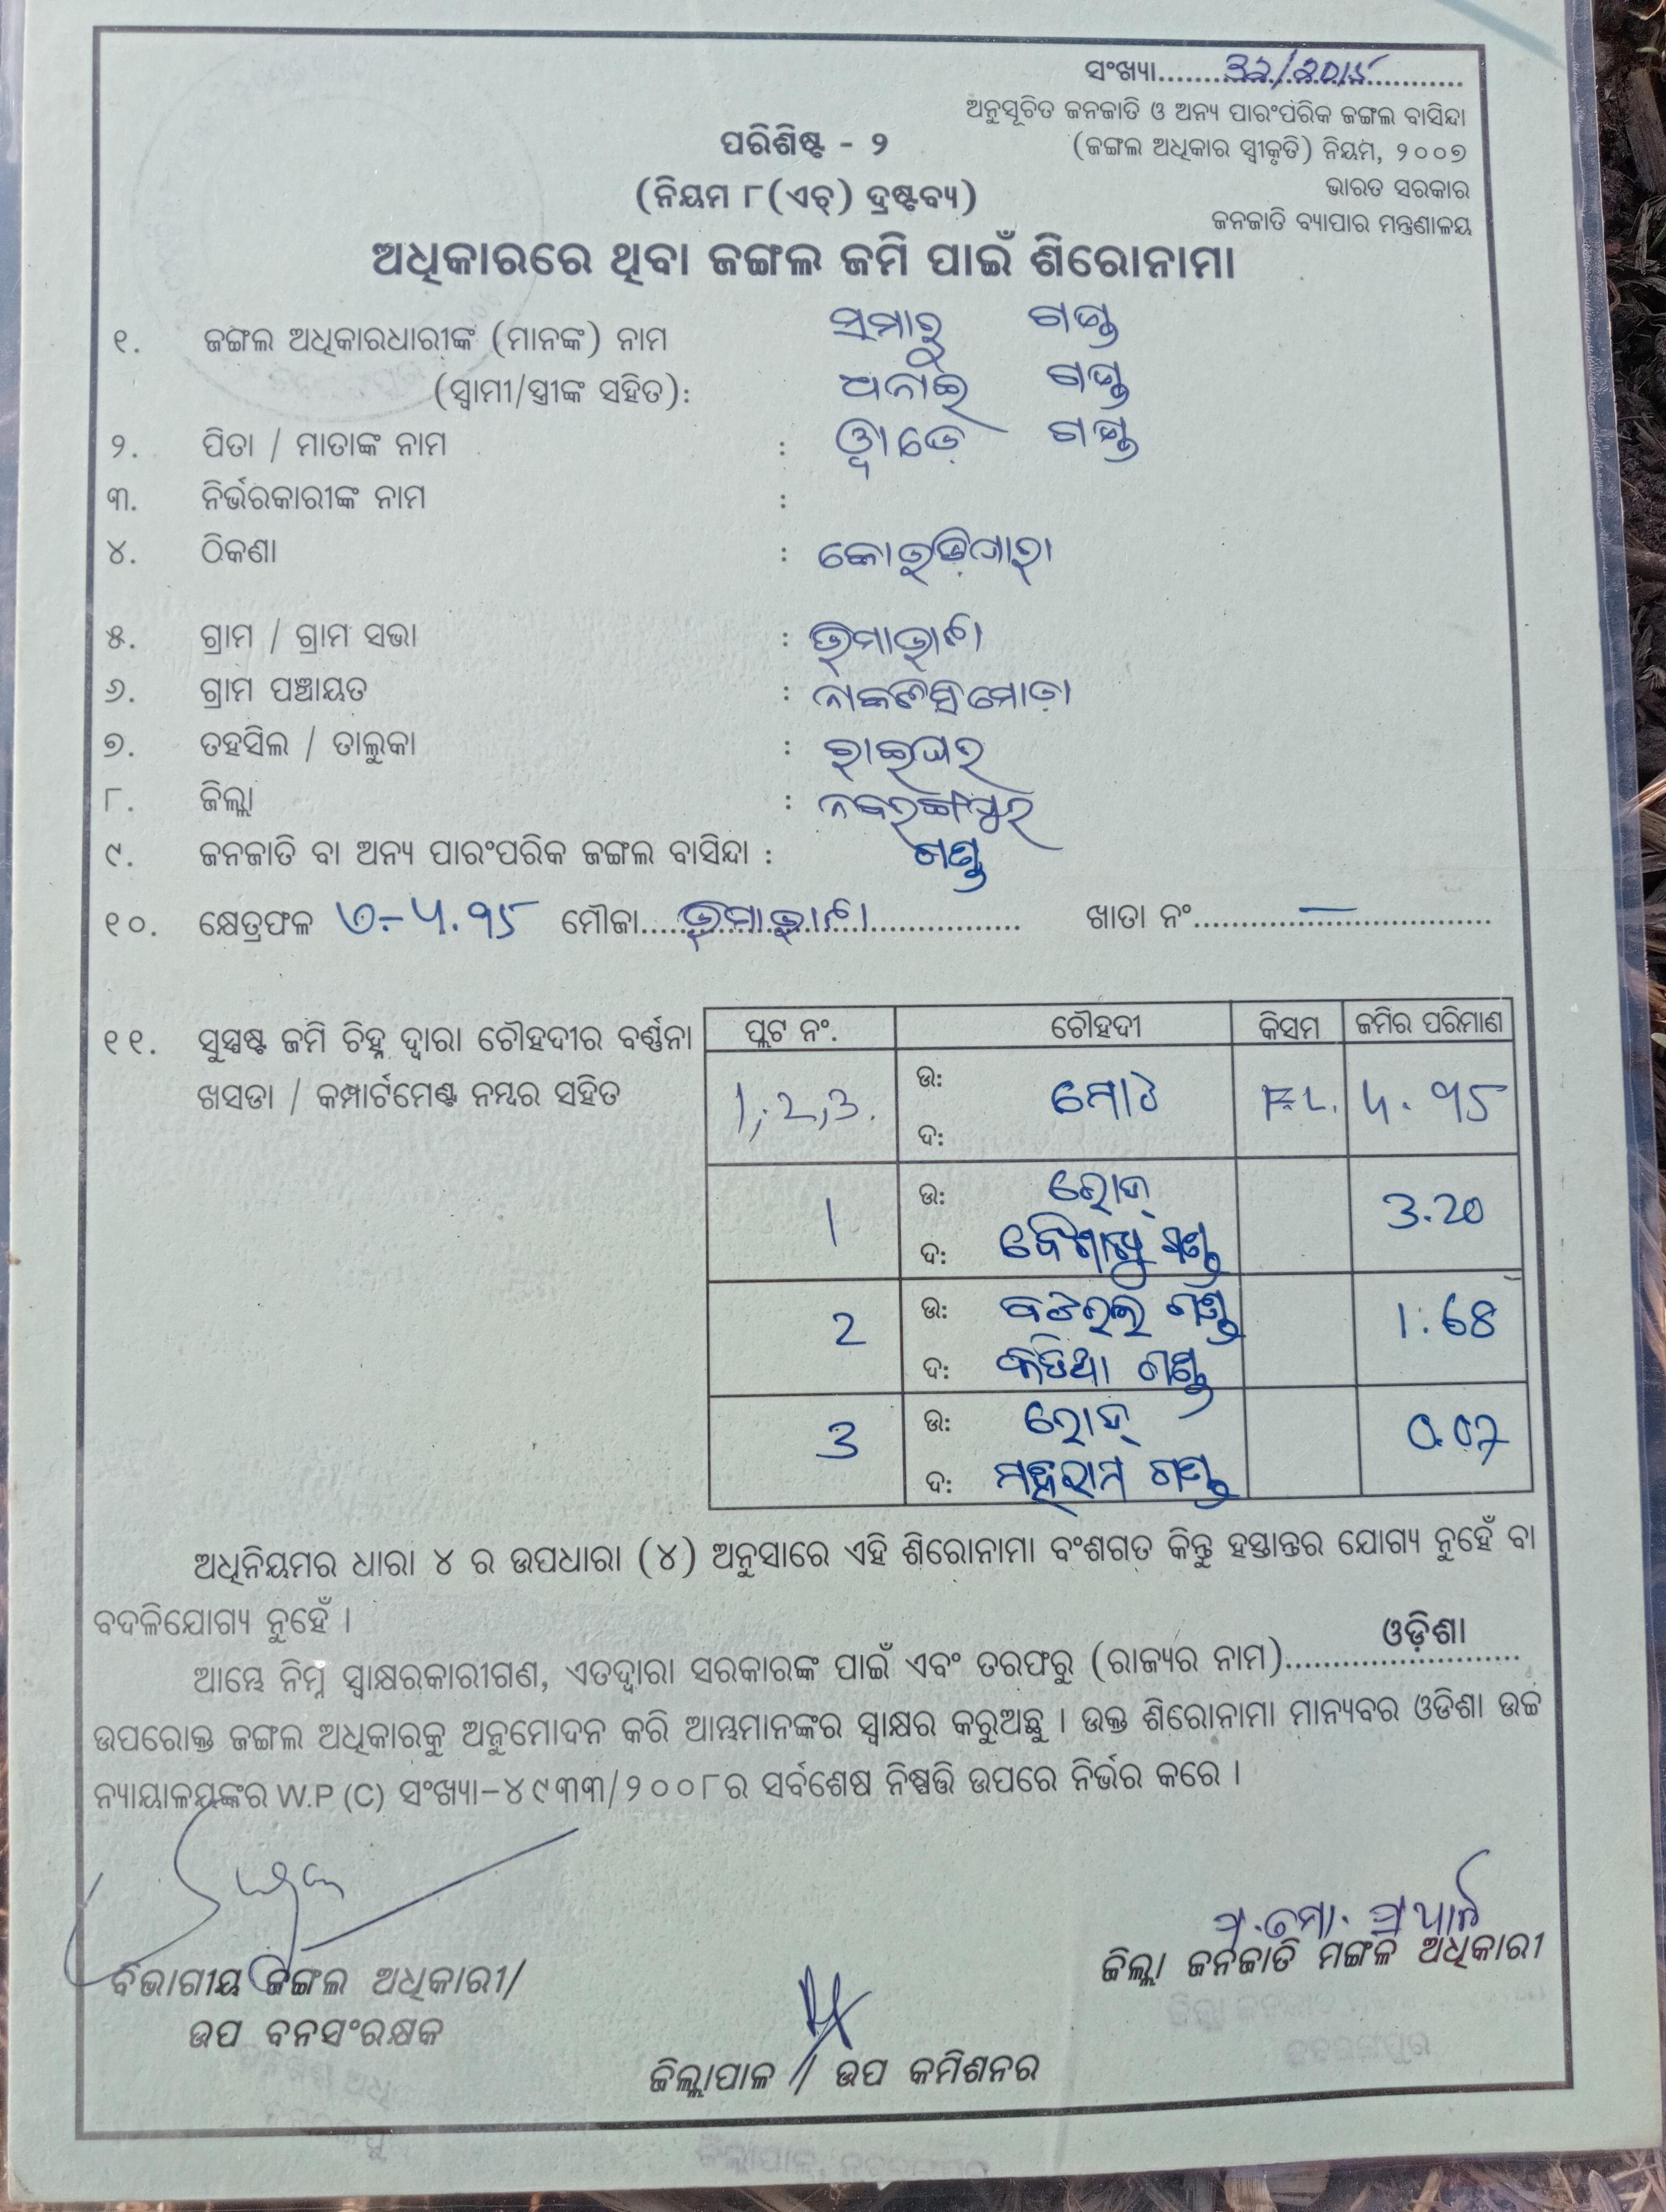 ସଂଖ୍ୟା.......32/2015.......
ଅନୁସୂଚିତ ଜନଜାତି ଓ ଅନ୍ୟ ପାରଂପରିକ ଜଙ୍ଗଲ ବାସିନ୍ଦା
(ଜଙ୍ଗଲ ଅଧିକାର ସ୍ୱୀକୃତି) ନିୟମ, ୨୦୦୭
ଭାରତ ସରକାର
ଜନଜାତି ବ୍ୟାପାର ମନ୍ତ୍ରଣାଳୟ
ପରିଶିଷ୍ଟ - ୨
(ନିୟମ ୮(ଏଚ୍) ଦ୍ରଷ୍ଟବ୍ୟ)
ଅଧିକାରରେ ଥିବା ଜଙ୍ଗଲ ଜମି ପାଇଁ ଶିରୋନାମା
୧. ଜଙ୍ଗଲ ଅଧିକାରଧାରୀଙ୍କ (ମାନଙ୍କ) ନାମ ସମାରୁ ଗଣ୍ଡ
(ସ୍ୱାମୀ/ସ୍ତ୍ରୀଙ୍କ ସହିତ): ଧନାଇ ଗଣ୍ଡ
୨. ପିତା / ମାତାଙ୍କ ନାମ : ଗଣ୍ଡ
୩. ନିର୍ଭରକାରୀଙ୍କ ନାମ :
୪. ଠିକଣା :
୫. ଗ୍ରାମ / ଗ୍ରାମ ସଭା :
୬. ଗ୍ରାମ ପଞ୍ଚାୟତ :
୭. ତହସିଲ / ତାଲୁକା : ରାଇଘର
୮. ଜିଲ୍ଲା : ନବରଙ୍ଗପୁର
୯. ଜନଜାତି ବା ଅନ୍ୟ ପାରଂପରିକ ଜଙ୍ଗଲ ବାସିନ୍ଦା : ଗଣ୍ଡ
୧୦. କ୍ଷେତ୍ରଫଳ ମୌଜା....... ଖାତା ନଂ.......—.......
୧୧. ସୁସ୍ପଷ୍ଟ ଜମି ଚିହ୍ନ ଦ୍ୱାରା ଚୌହଦୀର ବର୍ଣ୍ଣନା
ଖସଡା / କମ୍ପାର୍ଟମେଣ୍ଟ ନମ୍ବର ସହିତ
ପ୍ଲଟ ନଂ. ଚୌହଦୀ କିସମ ଜମିର ପରିମାଣ
1,2,3. ଉ: ଦ: ମୋଠ F.L. ୪.୯୫
1 ଉ: ରୋଡ୍ 3.20
ଦ: ବୈଶାଖୁ ଗଣ୍ଡ
2 ଉ: ଗଣ୍ଡ 1.68
ଦ: ଗଣ୍ଡ
3 ଉ: ରୋଡ୍ 0.07
ଦ: ଗଣ୍ଡ
ଅଧିନିୟମର ଧାରା ୪ ର ଉପଧାରା (୪) ଅନୁସାରେ ଏହି ଶିରୋନାମା ବଂଶଗତ କିନ୍ତୁ ହସ୍ତାନ୍ତର ଯୋଗ୍ୟ ନୁହେଁ ବା
ବଦଳିଯୋଗ୍ୟ ନୁହେଁ ।
ଆମ୍ଭେ ନିମ୍ନ ସ୍ୱାକ୍ଷରକାରୀଗଣ, ଏତଦ୍ୱାରା ସରକାରଙ୍କ ପାଇଁ ଏବଂ ତରଫରୁ (ରାଜ୍ୟର ନାମ).......ଓଡ଼ିଶା.......
ଉପରୋକ୍ତ ଜଙ୍ଗଲ ଅଧିକାରକୁ ଅନୁମୋଦନ କରି ଆମ୍ଭମାନଙ୍କର ସ୍ୱାକ୍ଷର କରୁଅଛୁ । ଉକ୍ତ ଶିରୋନାମା ମାନ୍ୟବର ଓଡିଶା ଉଚ୍ଚ
ନ୍ୟାୟାଳୟଙ୍କର W.P (C) ସଂଖ୍ୟା-୪୯୩୩/୨୦୦୮ର ସର୍ବଶେଷ ନିଷ୍ପତ୍ତି ଉପରେ ନିର୍ଭର କରେ ।
ବିଭାଗୀୟ ଜଙ୍ଗଲ ଅଧିକାରୀ/
ଉପ ବନସଂରକ୍ଷକ
ଜିଲ୍ଲାପାଳ / ଉପ କମିଶନର
ଜିଲ୍ଲା ଜନଜାତି ମଙ୍ଗଳ ଅଧିକାରୀ